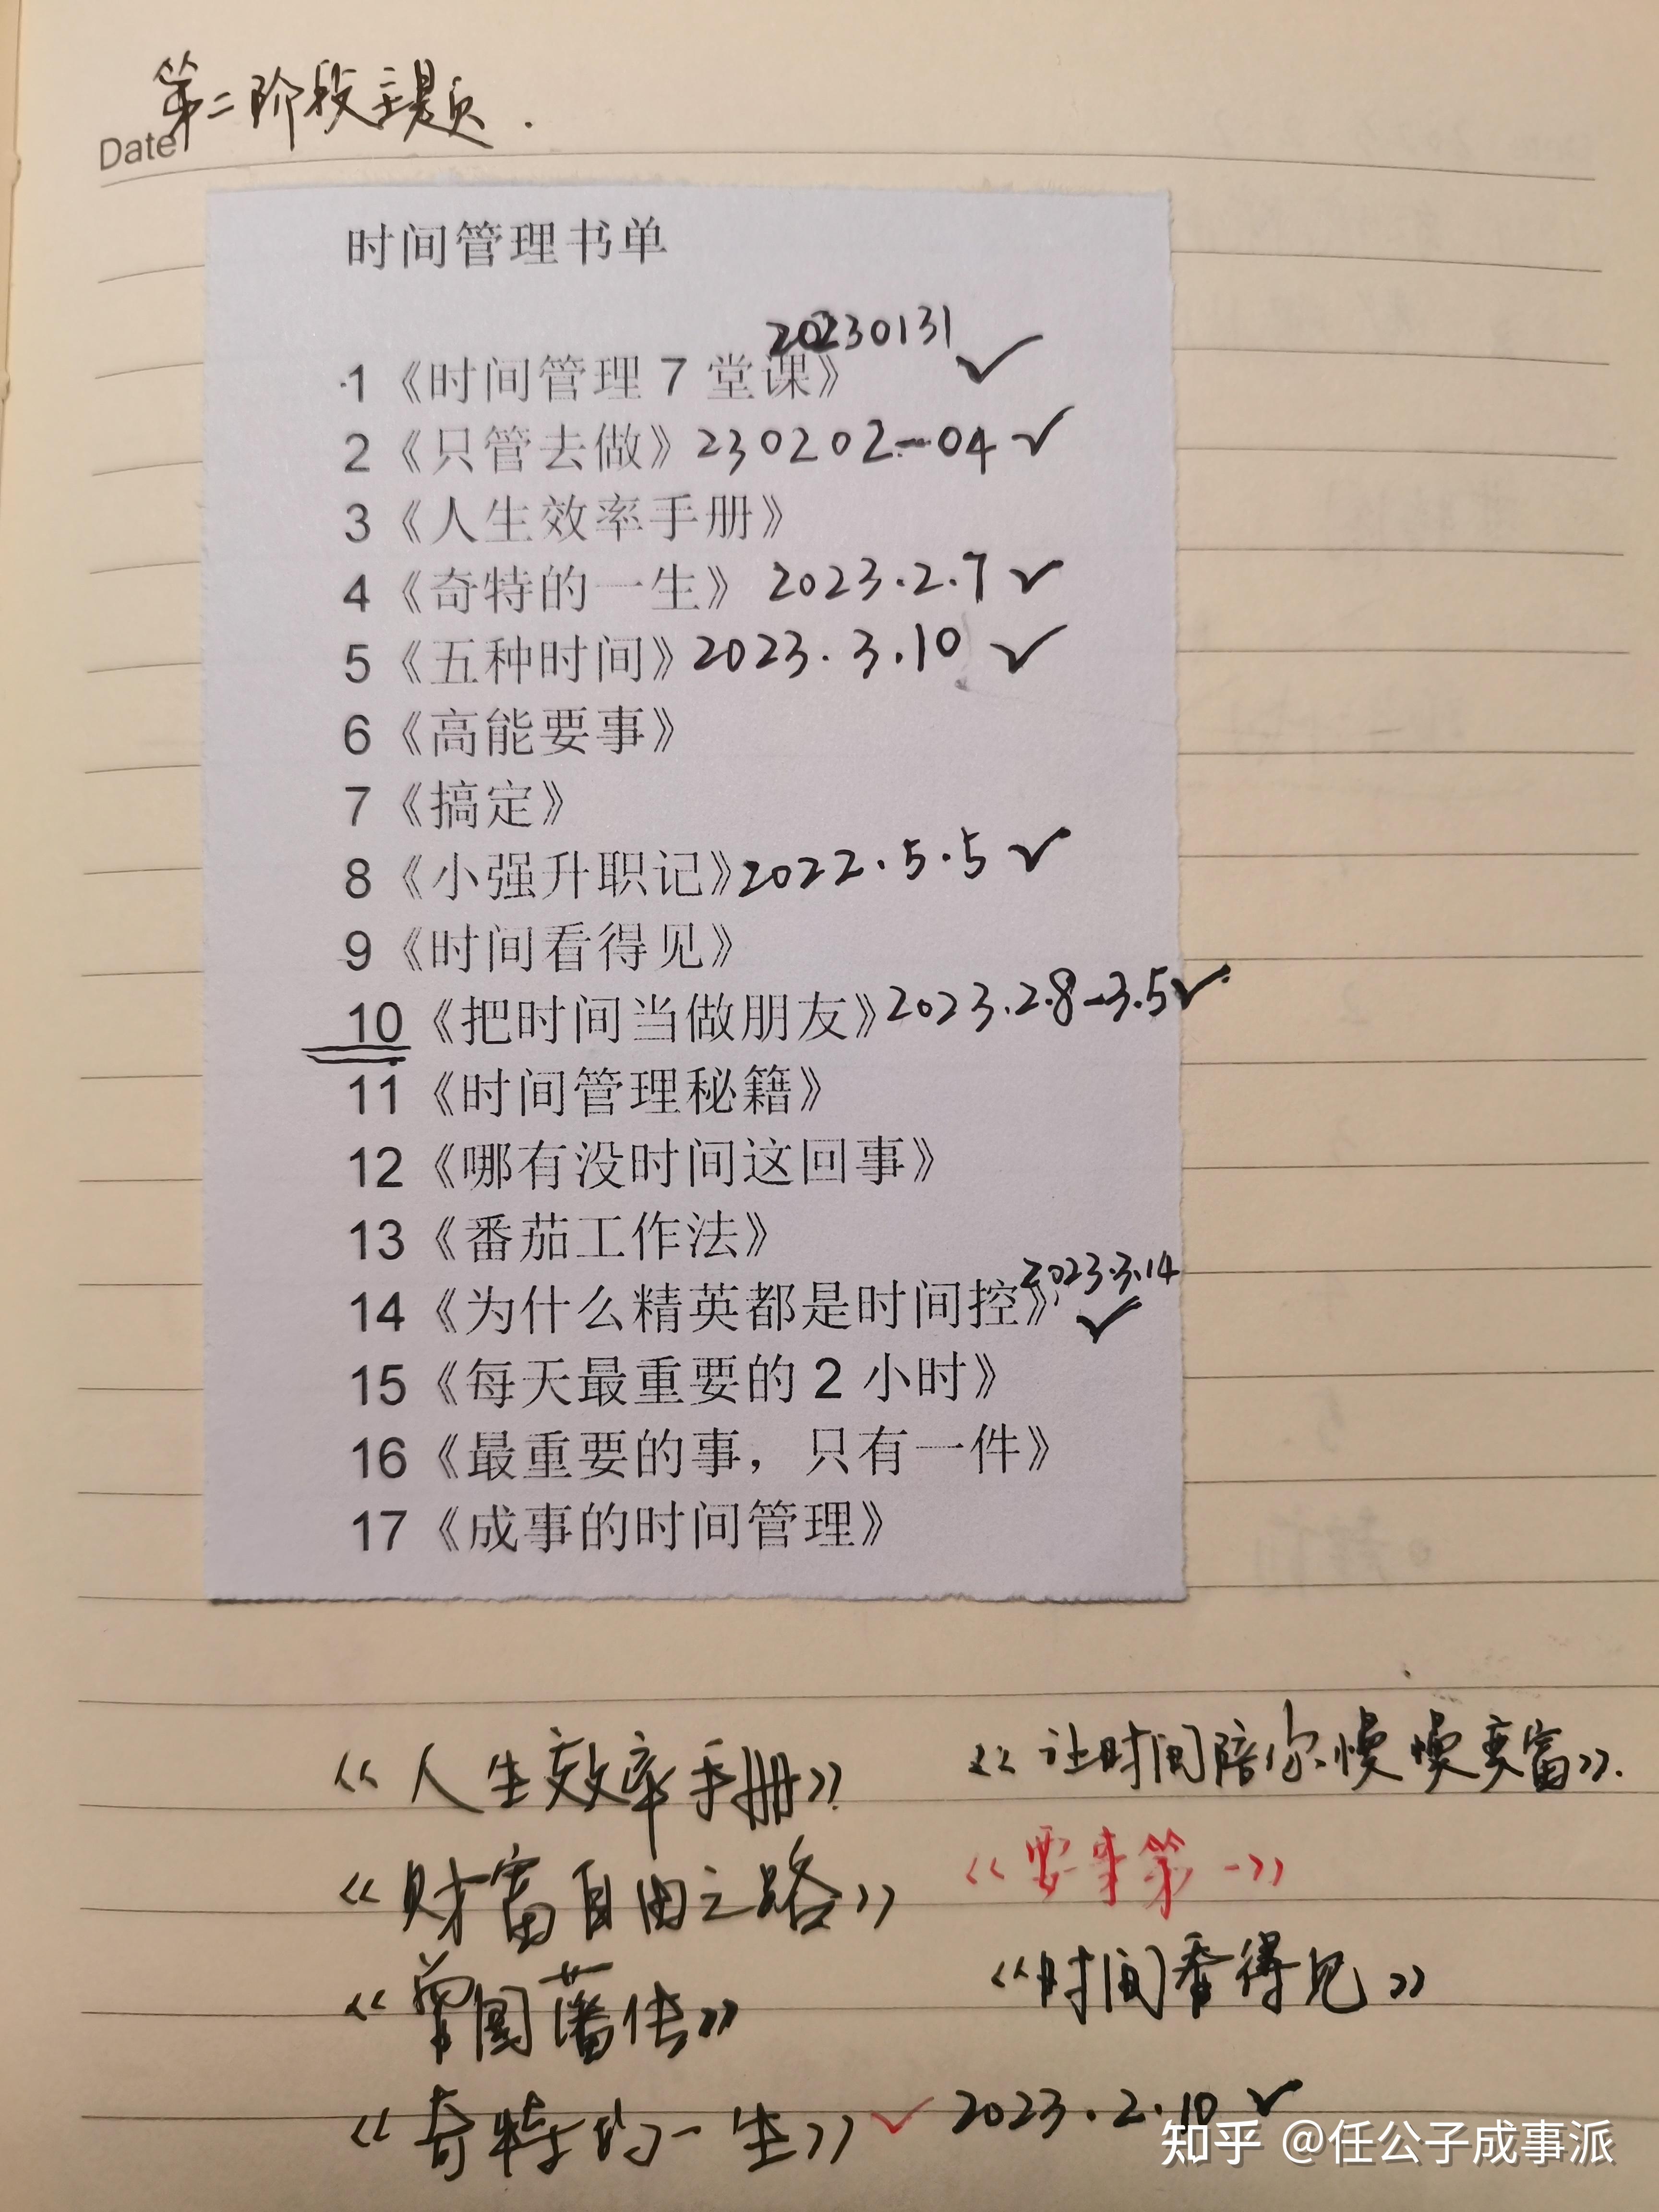 第二阶段主题.
Date
时间管理书单
20230131 ✓
1《时间管理 7 堂课》
2《只管去做》230202-04 ✓
3《人生效率手册》
4《奇特的一生》2023.2.7 ✓
5《五种时间》2023.3.10 ✓
6《高能要事》
7《搞定》
8《小强升职记》2022.5.5 ✓
9《时间看得见》
10《把时间当做朋友》2023.2.8-3.5 ✓
11《时间管理秘籍》
12《哪有没时间这回事》
13《番茄工作法》
14《为什么精英都是时间控》2023.3.14 ✓
15《每天最重要的 2 小时》
16《最重要的事，只有一件》
17《成事的时间管理》
《人生效率手册》 《让时间陪你慢慢变富》.
《财富自由之路》 《要事第一》
《曾国藩传》 《时间看得见》
《奇特的一生》✓ 2023.2.10 ✓
知乎 @任公子成事派